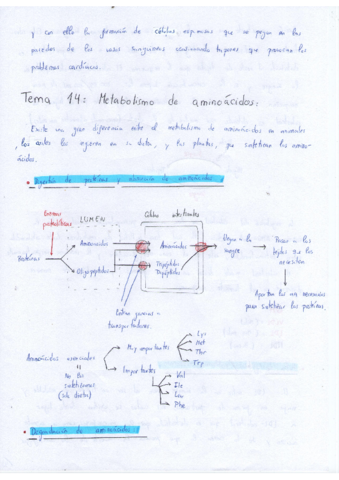 y con ello la formación de células espumosas que se pegan en las
paredes de los vasos sanguíneos ocasionando tapones que
problemas cardíacos.
Tema 14: Metabolismo de aminoácidos:
Existe una gran diferencia entre el metabolismo de aminoácidos en animales
, los cuales los ingieren en su dieta, y las plantas, que sintetizan los aminoá-
cidos.
• Digestión de proteínas y obtención de aminoácidos:
Enzimas
proteolíticas
LUMEN
Células intestinales
Proteínas
Aminoácidos
Oligopéptidos
Aminoácidos
Dipéptidos
Tripéptidos
Viajan a la
sangre
Pasan a los
tejidos que los
necesitan
Aportan los aa necesarios
para sintetizar las proteínas.
transportadores.
Aminoácidos esenciales
=
No los
sintetizamos
(de dieta)
Muy importantes
Lys
Met
Thr
Trp
Importantes
Val
Ile
Leu
Phe
• Degradación de aminoácidos: